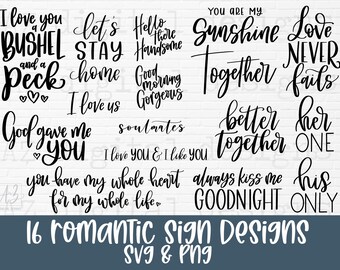 I love you
a
BUSHEL
and a
Peck
let's
STAY
home
Hello
there
Handsome
YOU ARE MY
Sunshine
Love
NEVER
fails
I love us
Good
morning
Gorgeous
Together
God gave me
YOU
soulmates
I love you & I like you
better
together
her
ONE
you have my whole heart
for my whole life
always kiss me
GOODNIGHT
his
ONLY
16 ROMANTIC SIGN DESIGNS
SVG & PNG